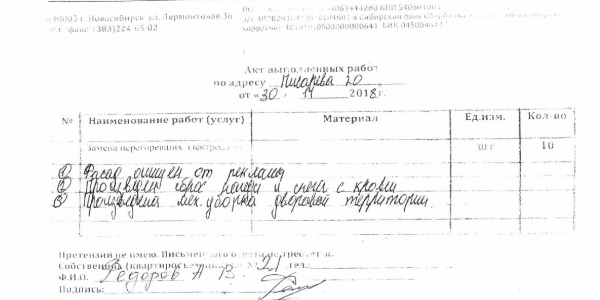 630005 г. Новосибирск ул. Лермонтова 36
тел. факс (383)224-65-02
в Сибирская банк Сбербанка
Акт выполненных работ
по адресу Писарева 20
от «30» 11 2018г.
№ Наименование работ (услуг) Материал Ед.изм. Кол-во
Замена перегоревших шт 10
① Фасад очищен от рекламы
② Произведен сброс наледи и снега с кровли
③ Произведена мех. уборка дворовой территории.
Претензий не имею. Письменного ответа не требуется.
Собственник (квартиросъемщик) № 21 тел.:
Ф.И.О. Федоров А В
Подпись: